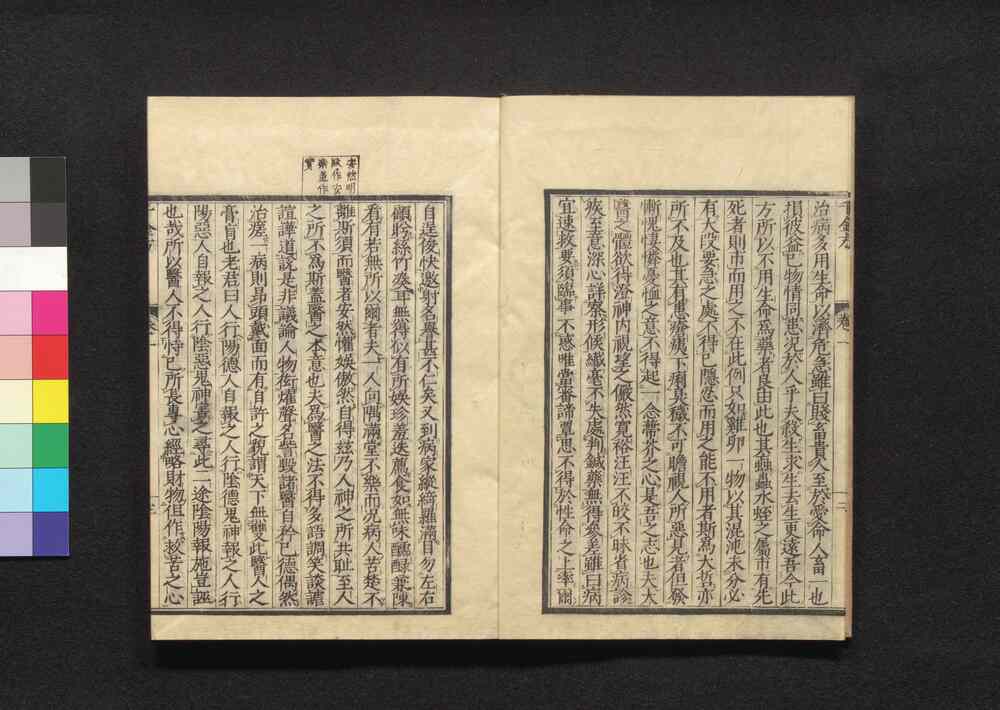 治病多用生命以濟危急雖曰賤畜貴人至於愛命人畜一也
損彼益己物情同患况於人乎夫殺生求生去生更遠吾今此
方所以不用生命爲藥者良由此也其蝱蟲水蛭之屬市有先
死者則市而用之不在此例只如雞卵一物以其混沌未分必
有大段要急之處不得已隱忍而用之能不用者斯爲大哲亦
所不及也其有患瘡痍下痢臭穢不可瞻視人所惡見者但發
慚愧悽憐憂恤之意不得起一念蔕芥之心是吾之志也夫大
醫之體欲得澄神内視望之儼然寛裕汪汪不皎不昧省病診
疾至意深心詳察形候纖毫不失處判鍼藥無得參差雖曰病
宜速救要須臨事不惑唯當審諦覃思不得於性命之上率爾
自逞俊快邀射名譽甚不仁矣又到病家縱綺羅滿目勿左右
顧眄絲竹湊耳無得似有所娯珍羞迭薦食如無味醽醁兼陳
看有若無所以爾者夫一人向隅滿堂不樂而况病人苦楚不
離斯須而醫者安然懽娯傲然自得兹乃人神之所共耻至人
之所不爲斯蓋醫之本意也夫爲醫之法不得多語調笑談謔
諠譁道說是非議論人物衒燿聲名訾毀諸醫自矜己德偶然
治瘥一病則昂頭戴面而有自許之貌謂天下無雙此醫人之
膏肓也老君曰人行陽德人自報之人行陰德鬼神報之人行
陽惡人自報之人行陰惡鬼神害之尋此二途陰陽報施豈誣
也哉所以醫人不得恃己所長專心經略財物但作救苦之心